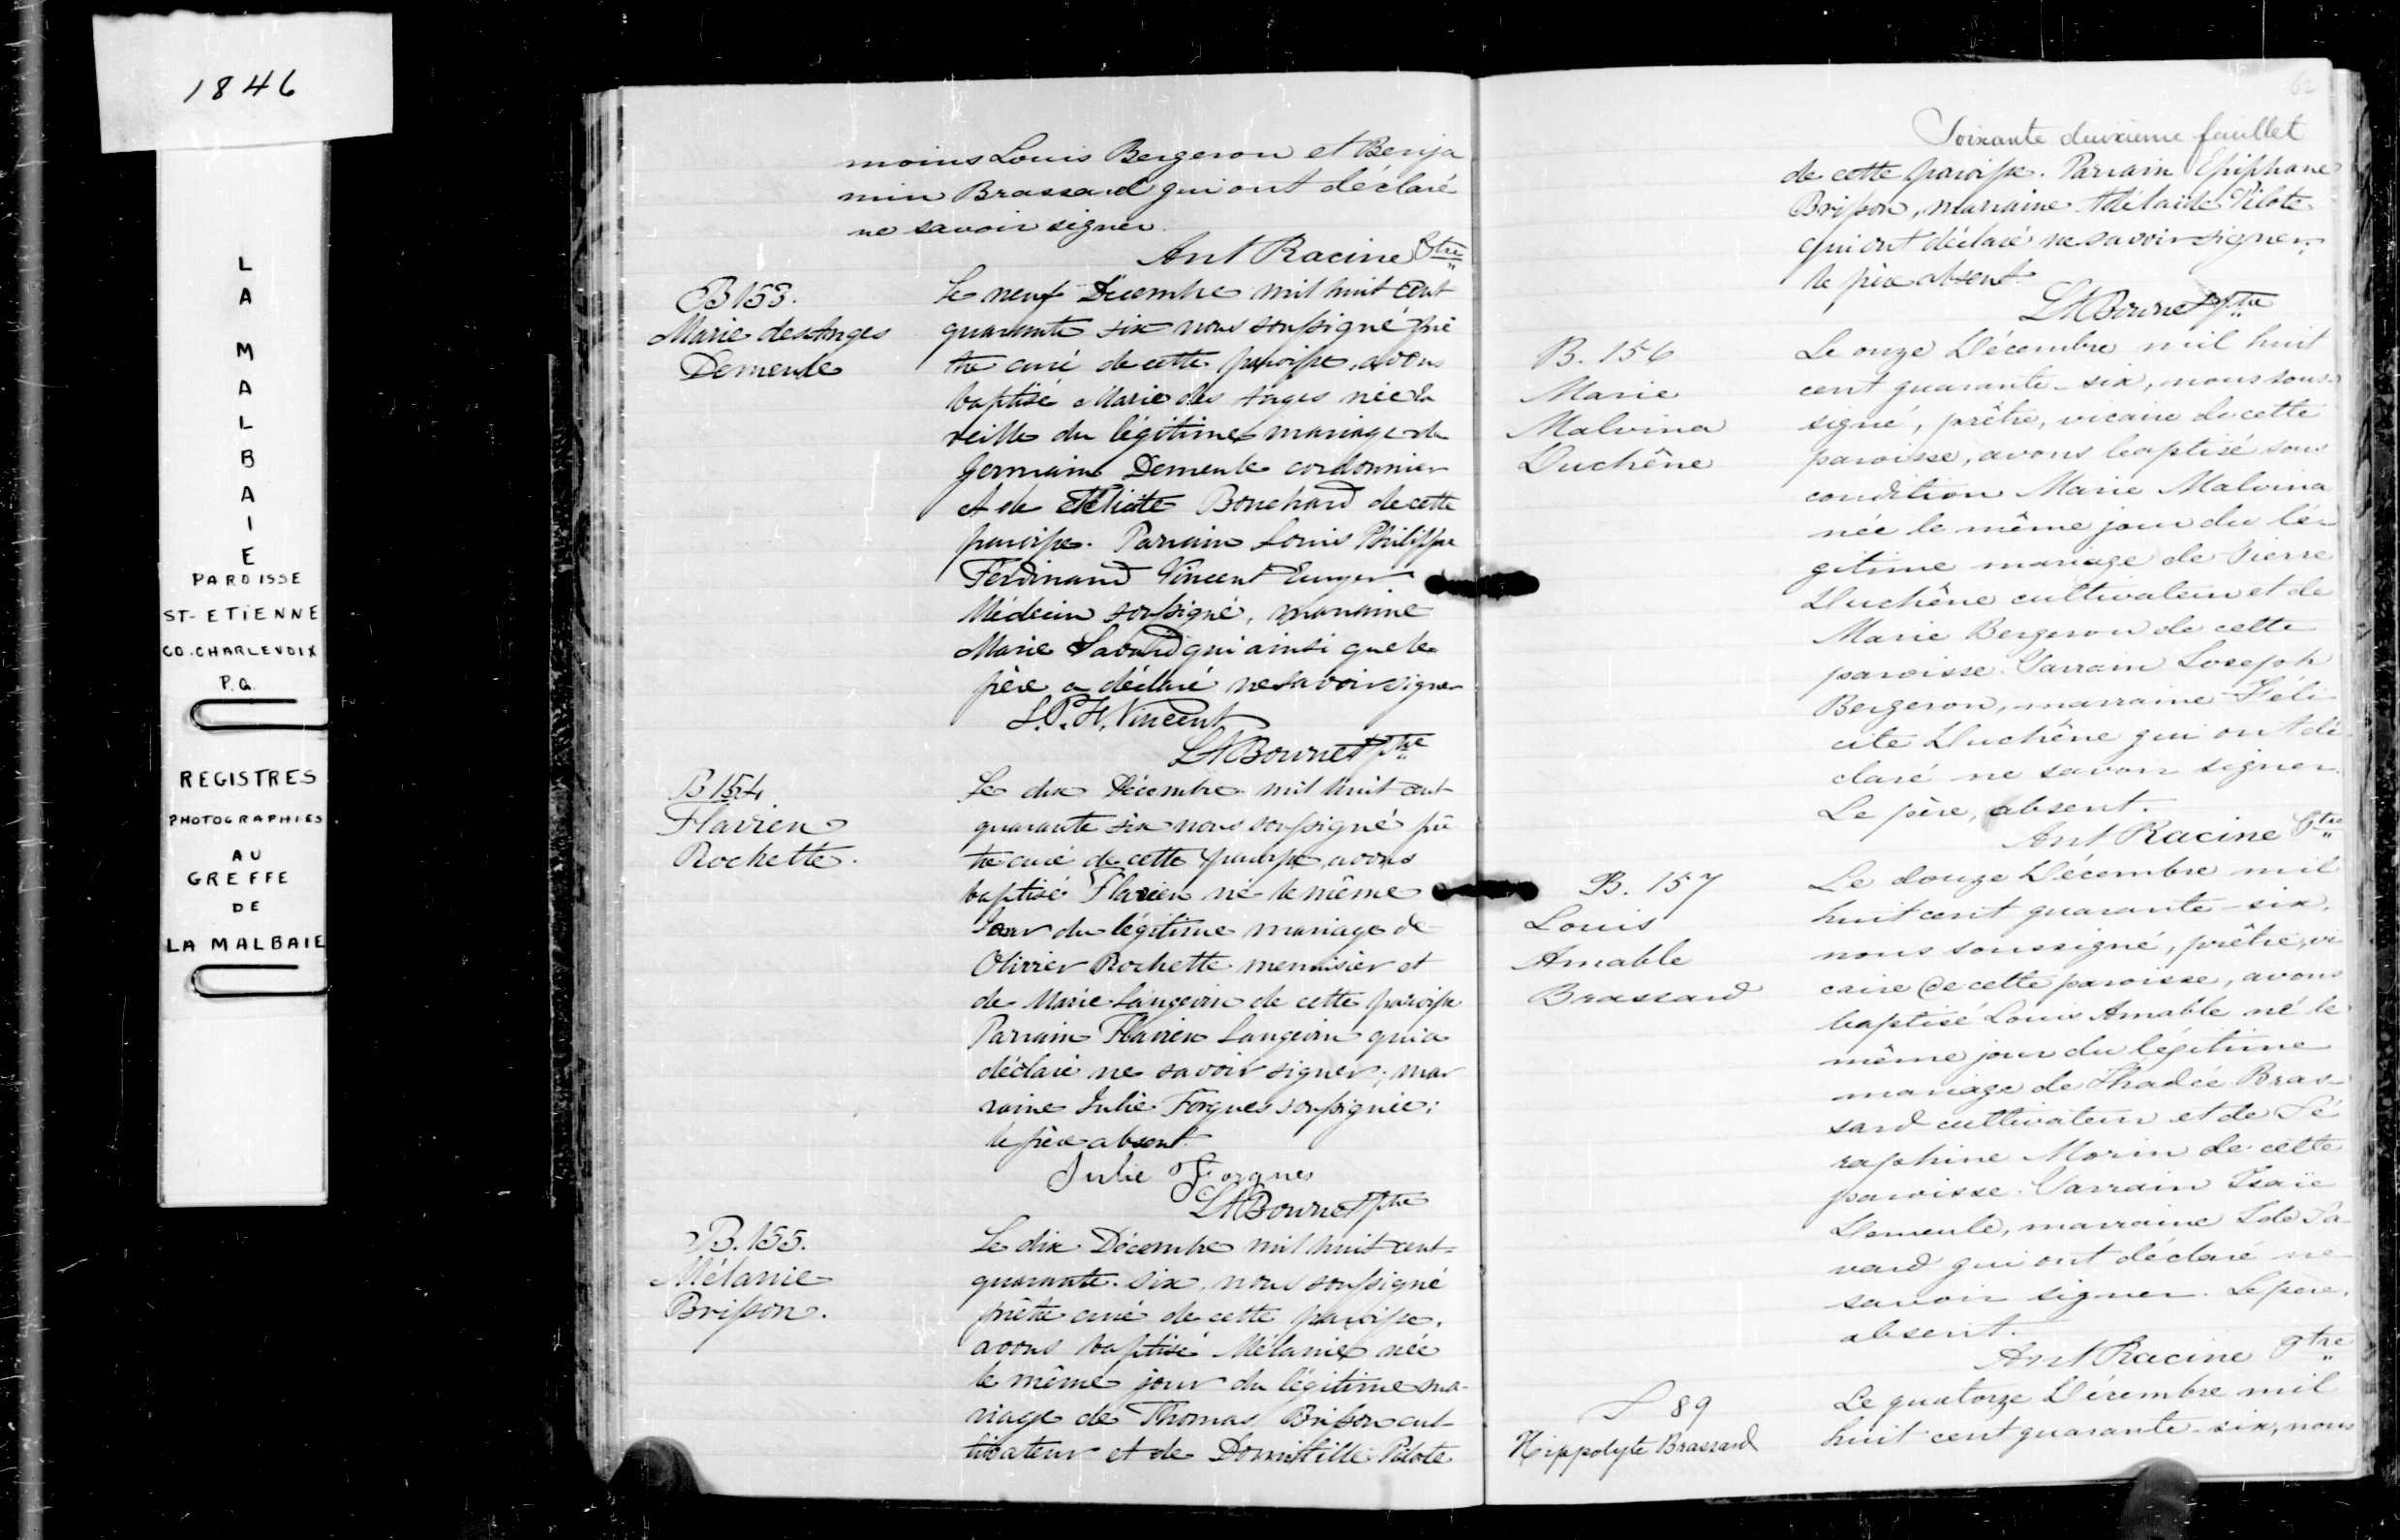 1846
L
A
M
A
L
B
A
I
E
PAROISSE
ST-ETIENNE
CO. CHARLEVOIX
P.Q.
REGISTRES
PHOTOGRAPHIES
AU
GREFFE
DE
LA MALBAIE
moins Louis Bergeron et Benja
min Brassard qui ont déclaré
ne savoir signer
Ant Racine Ptre
B 153.
Marie des Anges
Demeule
Le neuf Décembre mil huit cent
quarante six nous soussigné prê
tre curé de cette paroisse, avons
baptisé Marie des Anges née la
veille du légitime mariage de
Germain Demeule cordonnier
et de Félicité Bouchard de cette
paroisse. Parrain Louis Philippe
Ferdinand Vincent Ecuyer
Médecin soussigné, marraine
Marie Savard qui ainsi que le
père a déclaré ne savoir signer
L. P. F. Vincent
Ptre
B 154
Flavien
Rochette.
Le dix Décembre mil huit cent
quarante six nous soussigné prê
tre curé de cette paroisse, avons
baptisé Flavien né le même
Jour du légitime mariage de
Olivier Rochette menuisier et
de Marie Langevin de cette paroisse
Parrain Flavien Langevin qui a
déclaré ne savoir signer; mar
raine Julie Forgues soussignée;
le père absent.
Julie Forgues
Ptre
B. 155.
Mélanie
Brisson.
Le dix Décembre mil huit cent-
quarante-six, nous soussigné
prêtre curé de cette paroisse,
avons baptisé Mélanie née
le même jour du légitime ma-
riage de Thomas Brisson cul-
tivateur et de Domitille Pilote
62
Soixante deuxième feuillet
de cette paroisse. Parrain Epiphane
Brisson, marraine Adélaide Pilote
qui ont déclaré ne savoir signer;
le père absent.
Ptre
B. 156
Marie
Malvina
Duchêne
Le onze Décembre mil huit
cent quarante-six, nous sous-
signé, prêtre, vicaire de cette
paroisse, avons baptisé sous
condition Marie Malvina
née le même jour du lé-
gitime mariage de Pierre
Duchêne cultivateur et de
Marie Bergeron de cette
paroisse. Parrain Joseph
Bergeron, marraine Féli-
cité Duchêne qui ont dé-
claré ne savoir signer.
Le père, absent.
Ant Racine Ptre
B. 157
Louis
Amable
Brassard
Le douze Décembre mil
huit cent quarante-six,
nous soussigné, prêtre, vi
caire de cette paroisse, avons
baptisé Louis Amable né le
même jour du légitime
mariage de Thadée Bras-
sard cultivateur et de Sé
raphine Morin de cette
paroisse. Parrain Isaïe
Demeule, marraine Ide Sa-
vard qui ont déclaré ne
savoir signer. Le père,
absent.
Ant Racine Ptre
S 89
Hippolyte Brassard
Le quatorze Décembre mil
huit cent quarante-six, nous